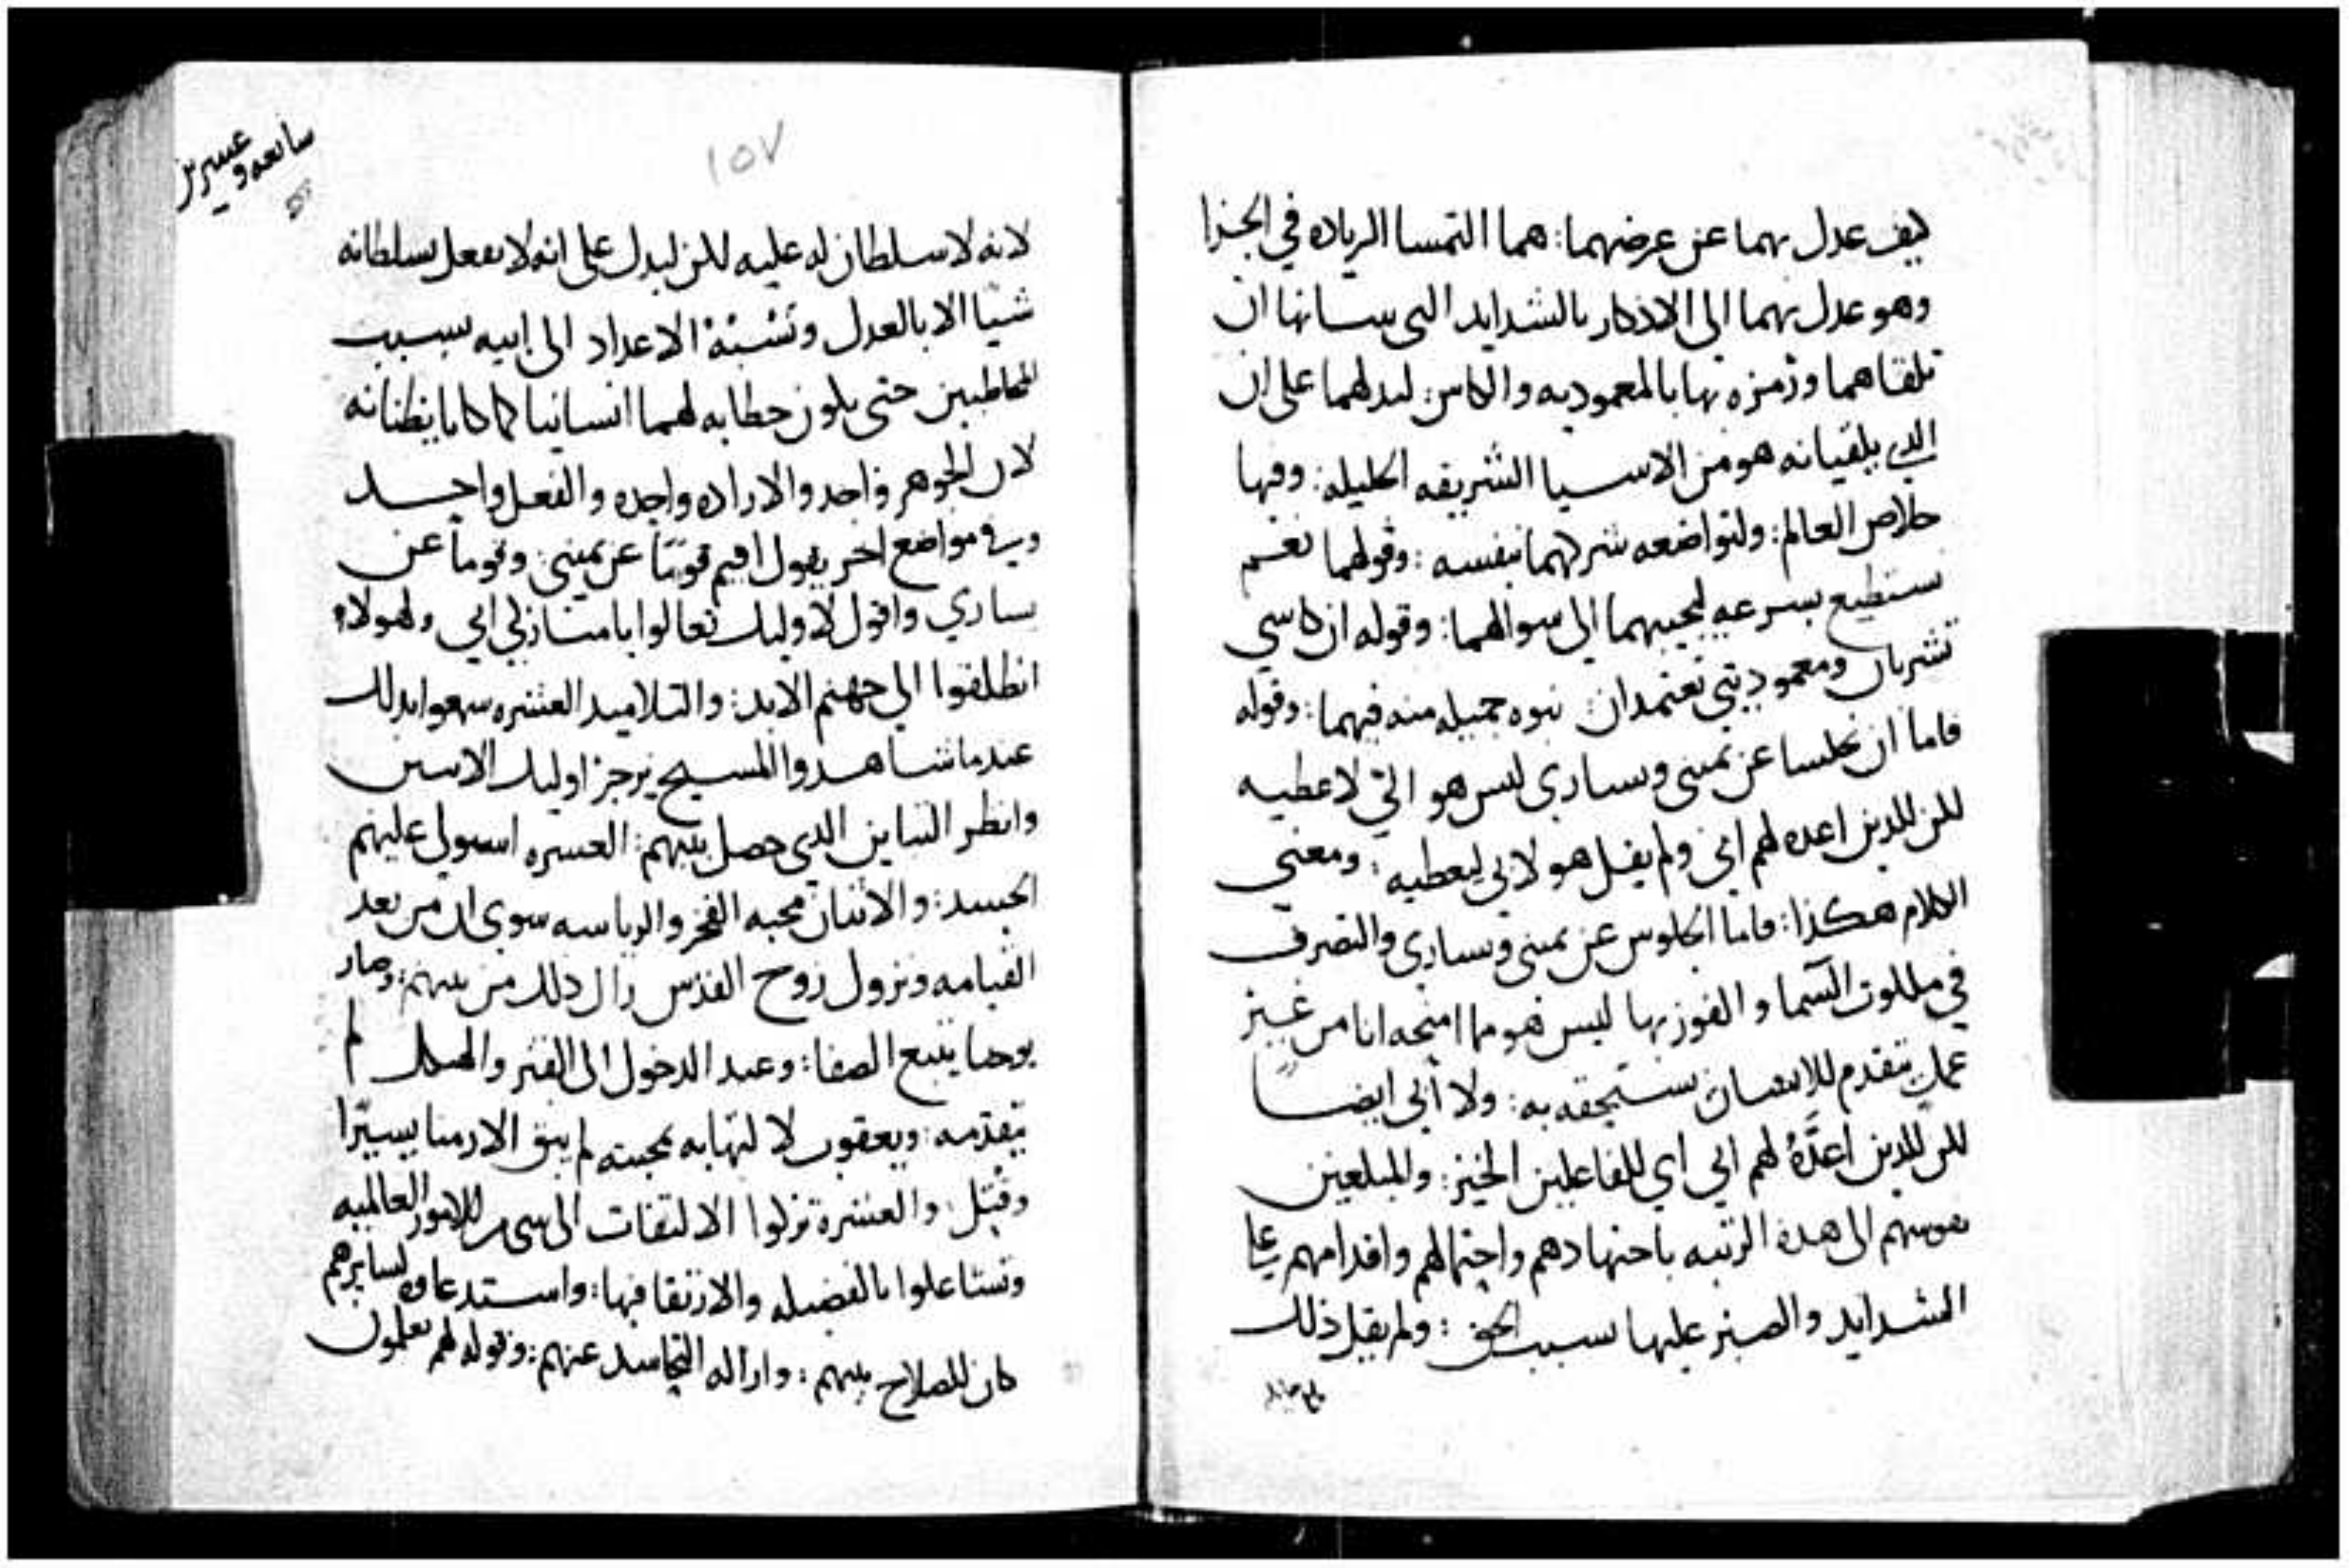 كيف عدل بهما عن عرضهما: هما التمسا الرياده في الجزا
وهو عدل بهما الى الاذكار بالشدايد التى سانها ان
تلقاهما ورمزه بها بالمعموديه والكاس: ليدلهما على ان
الدي يلقيانه هو من الاسيا الشريفه الجليله: وفيها
خلاص العالم: ولتواضعه شركهما بنفسه: وقولهما نعم
نستطيع بسرعه ليجيبهما الى سوالهما: وقوله ان كاسي
تشربان ومعموديتي تعتمدان: نبوه جميله منه فيهما: وقوله
فاما ان تجلسا عن يمينى ويسارى ليس هو الي لاعطيه
لكن للدين اعده لهم ابي ولم يقل هو لابي ليعطيه: ومعنى
الكلام هكذا: فاما الجلوس عن يمينى ويساري والتصرف
في ملكوت السما والفوز بها ليس هو مما امنحه انا من غير
عمل يتقدم للانسان يستحقه به: ولا أبى ايضا
لكن للدين اعدَّهُ لهم ابي اي للفاعلين الخير: والمبلغين
نفوسهم الى هده الرتبه باجتهادهم واحتمالهم واقدامهم على
الشدايد والصبر عليها بسبب الحق: ولم يقل ذلك
سابعه وعشرين
١٥٧
لانه لا سلطان له عليه لكن ليدل على انه لا يفعل بسلطانه
شيا الا بالعدل ونسبة الاعداد الى ابيه بسبب
المخاطبين حتى يكون خطابه لهما انسانيا كما كانا يظنانه
لان الجوهر واحد والاراده واحده والفعل واحد
وفي مواضع اخر يقول اقيم قومًا عن يمينى: وقومًا عن
يساري واقول لاوليك تعالوا يا مباركي ابي ولهولاء
انطلقوا الى جهنم الابد: والتلاميد العشره سمعوا بدلك
عندما شاهدوا المسيح يزجر اوليك الاتنين
وانظر التباين الدى حصل بينهم: العشره استولى عليهم
الحسد: والاتنان محبه الفخر والرياسه سوى ان من بعد
القيامه ونزول روح القدس زال دلك من بينهم: وصار
يوحنا يتبع الصفا: وعند الدخول الى القبر والهيكل لم
يتقدمه: ويعقوب لالتهابه بمحبته لم يبق الا زمنا يسيرًا
وقتل: والعشرة تركوا الالتفات الى شى من الامور العالميه
وتشاغلوا بالفضيله والارتقا فيها: واستدعاوه لسايرهم
كان للصلاح بينهم: وازاله التحاسد عنهم: وقوله لهم تعلمون